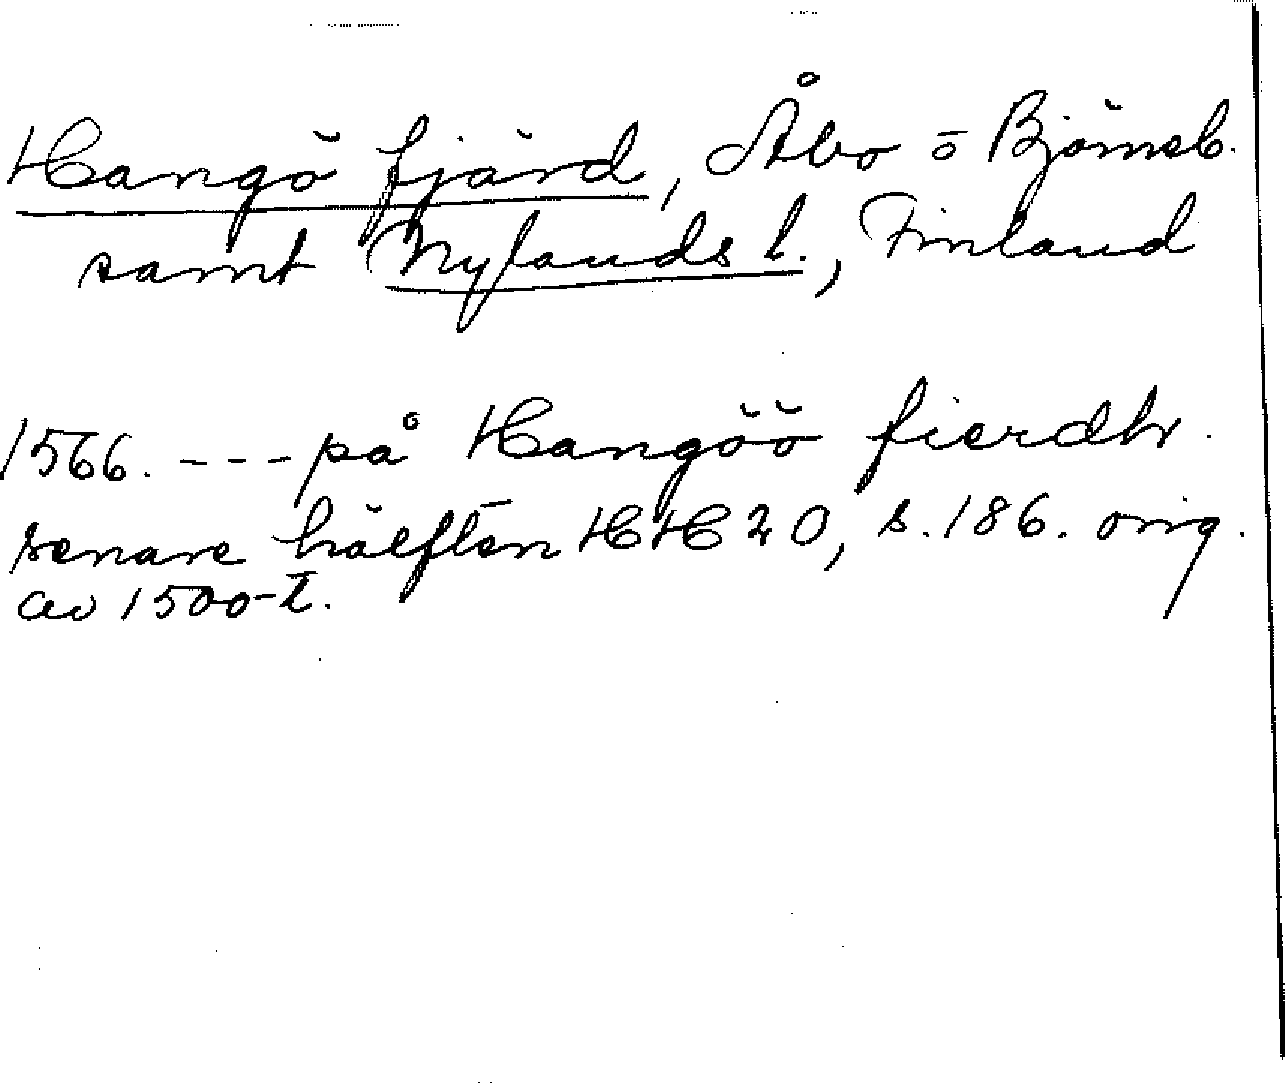 Hangö fjärd, Åbo o Björneb.
samt Nylands l., Finland
1566. - - - på Hangöö fierdh.
senare hälften HH 20, s. 186. orig.
av 1500-t.